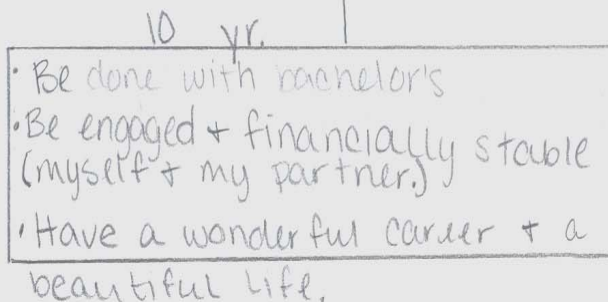 10 yr.
• Be done with bachelor's
• Be engaged + financially stable
(myself + my partner.)
• Have a wonderful career + a
beautiful life.